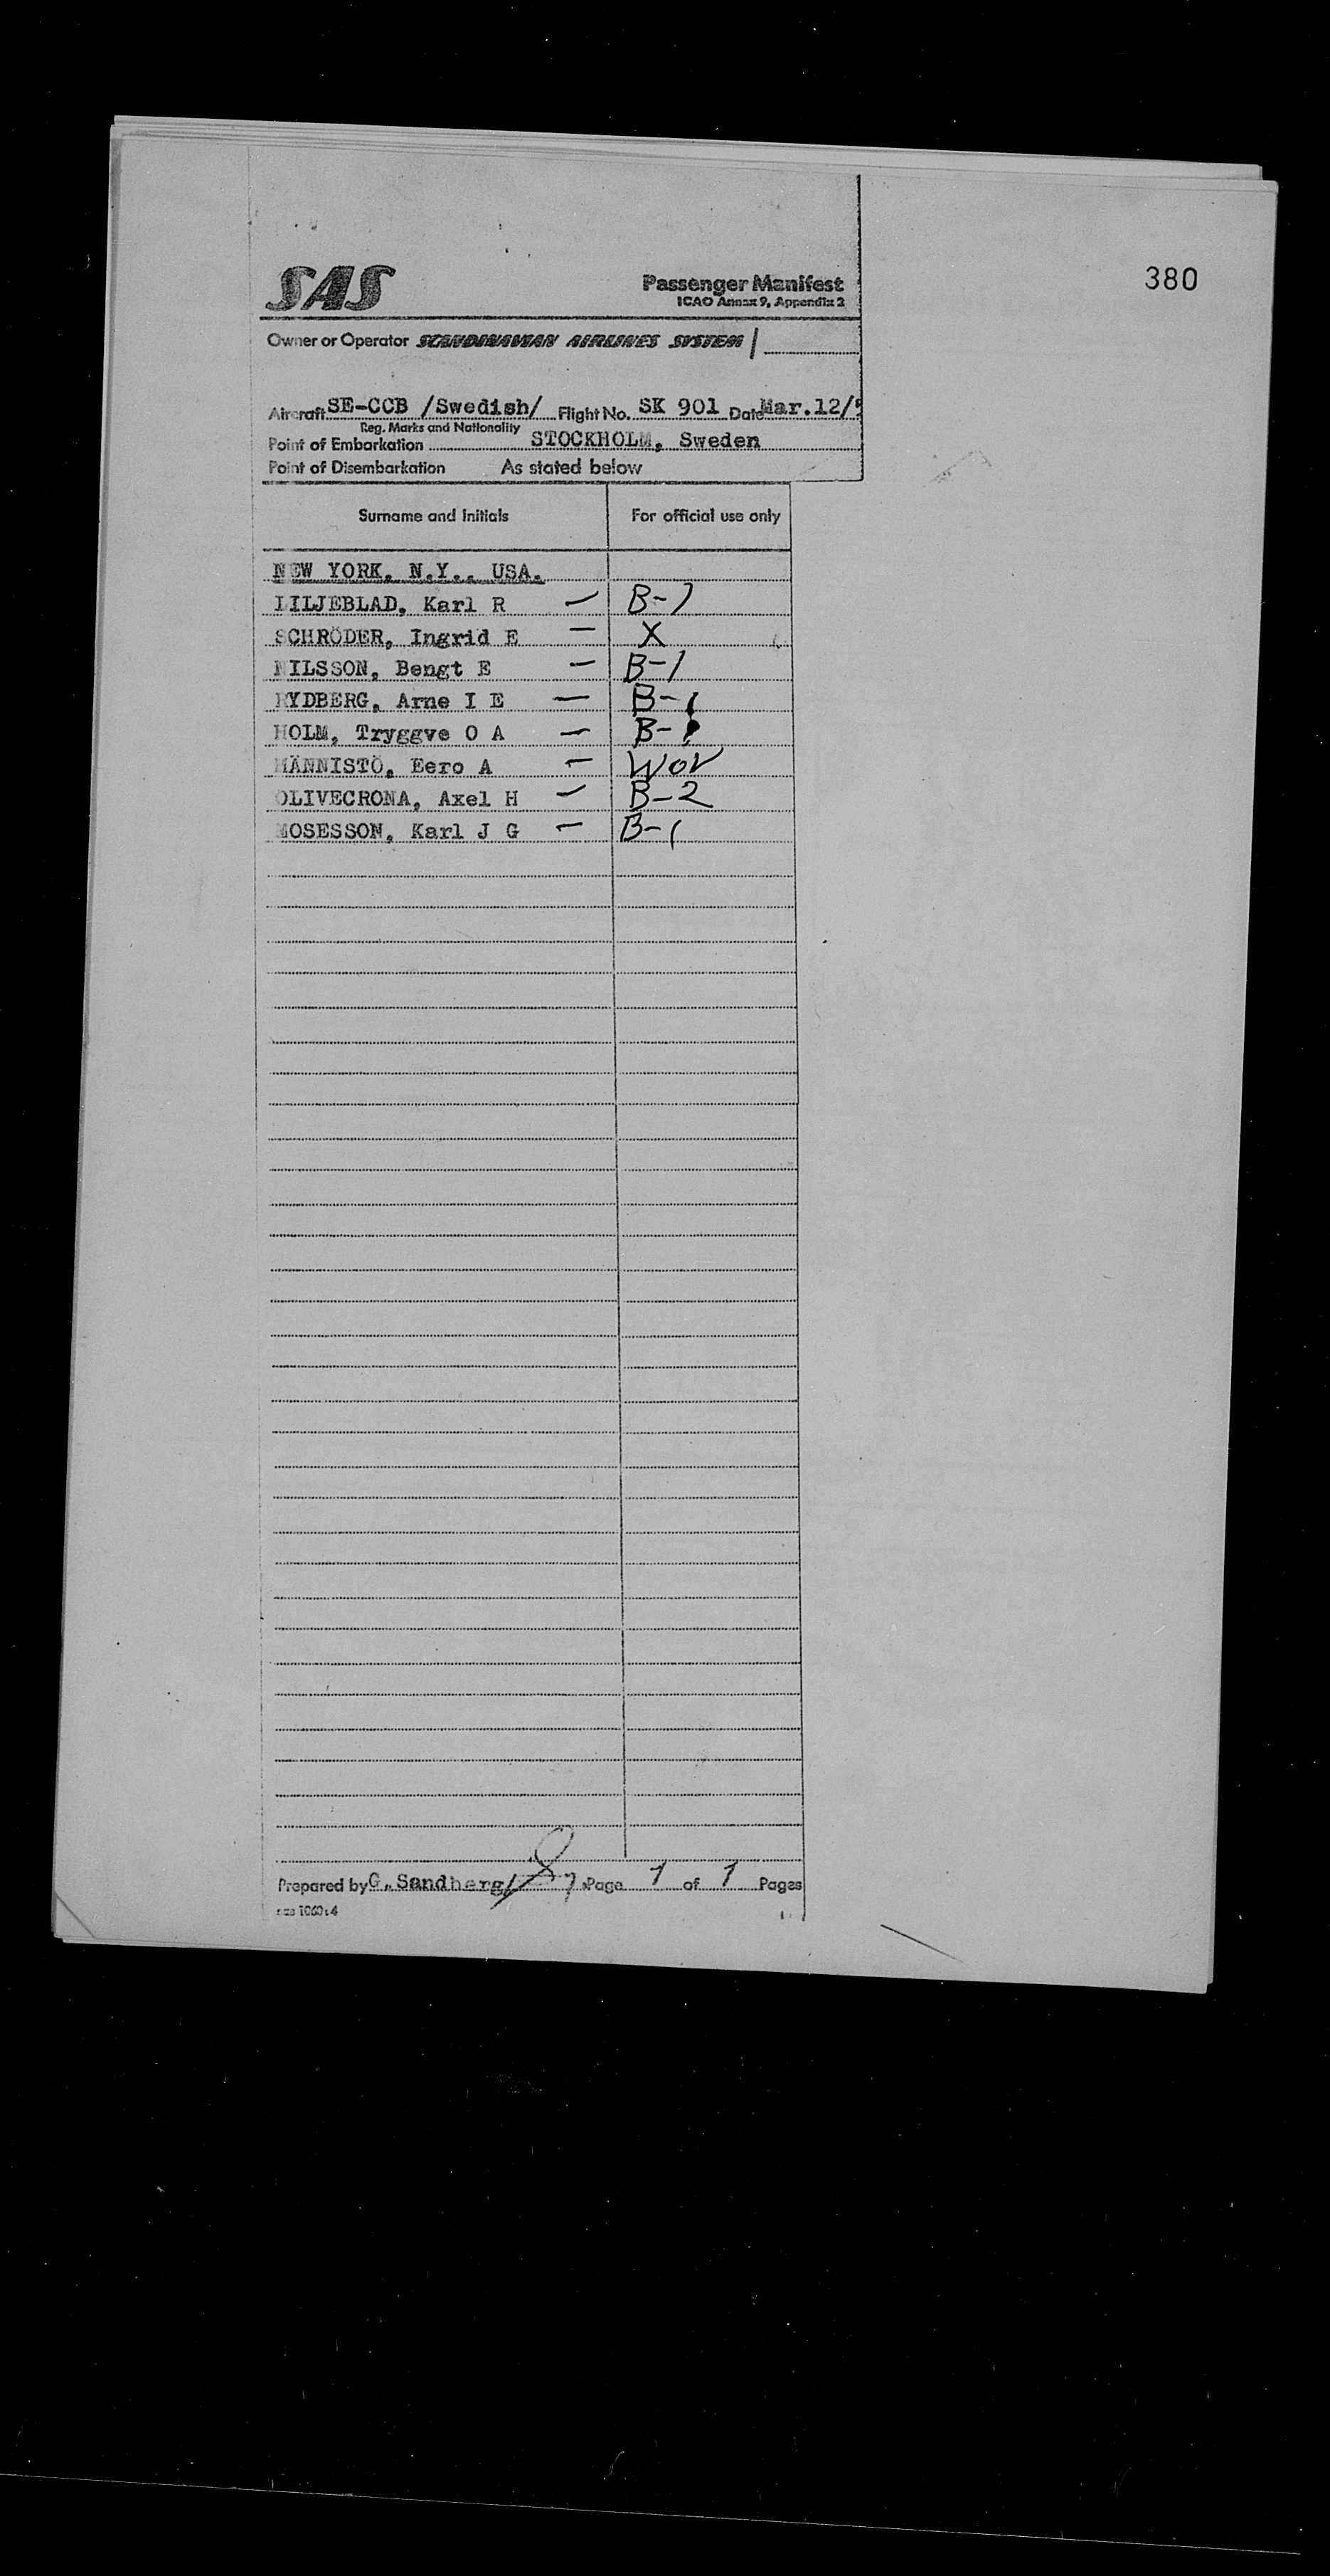 380
SAS Passenger Manifest
ICAO Annex 9, Appendix 2
Owner or Operator SCANDINAVIAN AIRLINES SYSTEM
Aircraft SE-CCB /Swedish/ Flight No. SK 901 Date Mar.12/5
Reg. Marks and Nationality
Point of Embarkation STOCKHOLM, Sweden
Point of Disembarkation As stated below
Surname and Initials For official use only
NEW YORK, N.Y., USA.
LILJEBLAD, Karl R — B-1
SCHRÖDER, Ingrid E — X
NILSSON, Bengt E — B-1
RYDBERG, Arne I E — B-1
HOLM, Tryggve O A — B-1
MÄNNISTÖ, Eero A — WOV
OLIVECRONA, Axel H — B-2
MOSESSON, Karl J G — B-1
Prepared by G. Sandberg/ Page 1 of 1 Pages
sas 1060:4